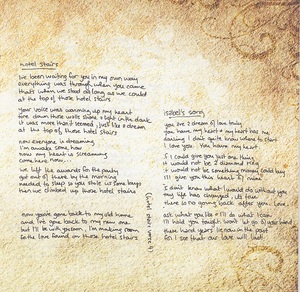 hotel stairs
ive been waiting for you in my own way
everything was through when you came
that's when we stood as long as we could
at the top of those hotel stairs
your voice was warming up my heart
fire down those walls shine a light in the dark
it was more than it seemed, just like a dream
at the top of those hotel stairs
now everyone is dreaming
i'm awake some how
now my heart is screaming
come here now
we left the
got out of there by the morning
needed to sleep so you stole us some keys
then we climbed up those hotel stairs
now you've gone back to my old home
and i've gone back to my new one
but i'll be with you soon, i'm making room
for the love found on those hotel stairs
isobel's song
you are a dream of love truly
you have my heart
darling i don't quite know where to start
i love you. You have my heart
if i could give you just one thing
it would not be a diamond ring
it would not be something money could buy
i'll give you this heart of mine
i don't know what i would do without you
my life has changed, its true
there is no going back after you. Love.
ask what you like i'll do what i can
i'll hold you tonight won't let go of your hand
these hard years lie now in the past
for i see that our love will last